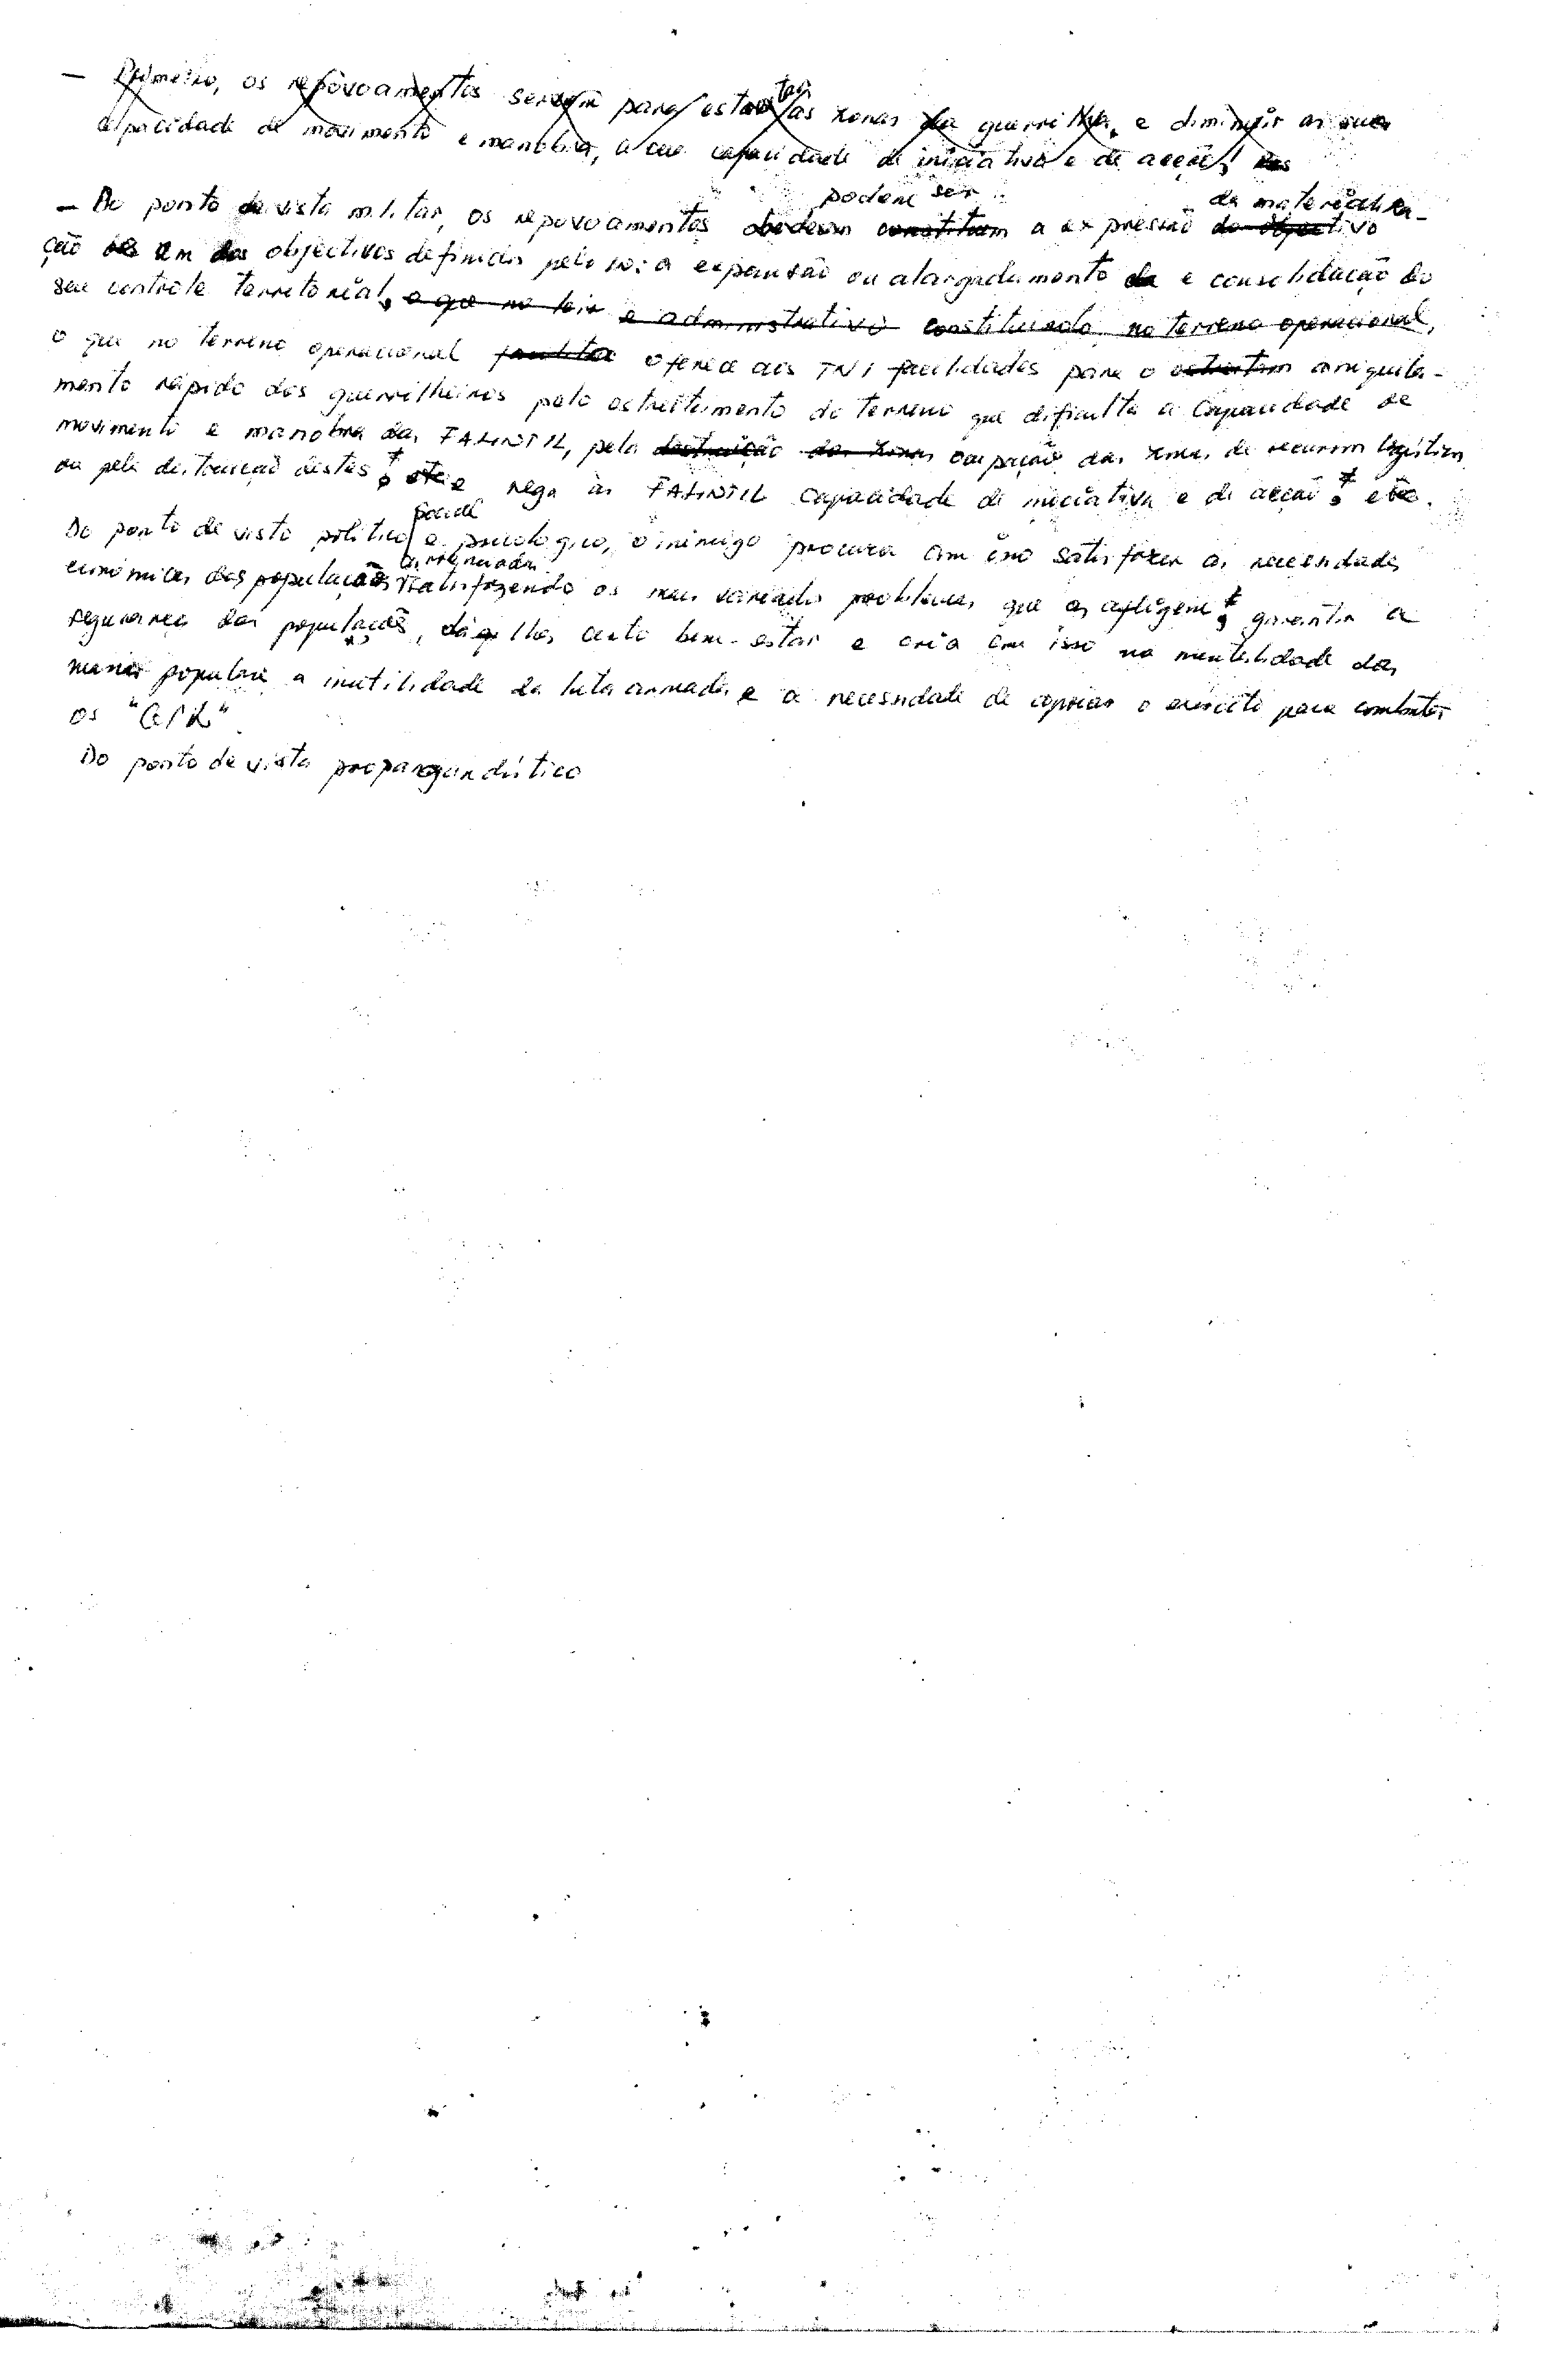 — Primeiro, os repovoamentos servem para estreitar as zonas da guerrilha, e diminuir as suas
capacidade de movimento e manobra, a sua capacidade de iniciativa e de acção,
podem ser da materializa-
— Do ponto de vista militar, os repovoamentos obedecem constituem a expressão do objectivo
ção de um dos objectivos definidos pelo a expansão ou alargadamento da e consolidação do
seu controle territorial, o que no e administrativo constituindo, no terreno operacional,
o que no terreno operacional facilita oferece aos TNI facilidades para o aniquila-
mento rápido dos guerrilheiros pelo estreitamento do terreno que dificulta a capacidade de
movimento e manobra das FALINTIL, pela destruição das zonas ocupação das zonas de recursos logísticos
ou pela destruição destes; e nega às FALINTIL capacidade de iniciativa e de acção; etc.
social
Do ponto de vista político e psicológico, o inimigo procura com isso satisfazer as necessidades
económicas das populações satisfazendo os mais variados problemas que as afligem; garantir a
segurança das populações, dá-lhes certo bem-estar e cria com isso na mentalidade das
massas populares a inutilidade da luta armada e a necessidade de apoiar o exército para combater
os "GPK"
Do ponto de vista propagandístico